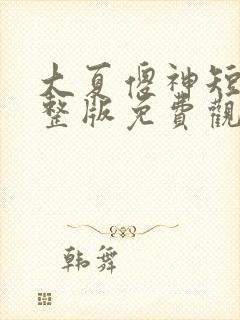 大夏傻神短
整版免費觀
韩舞